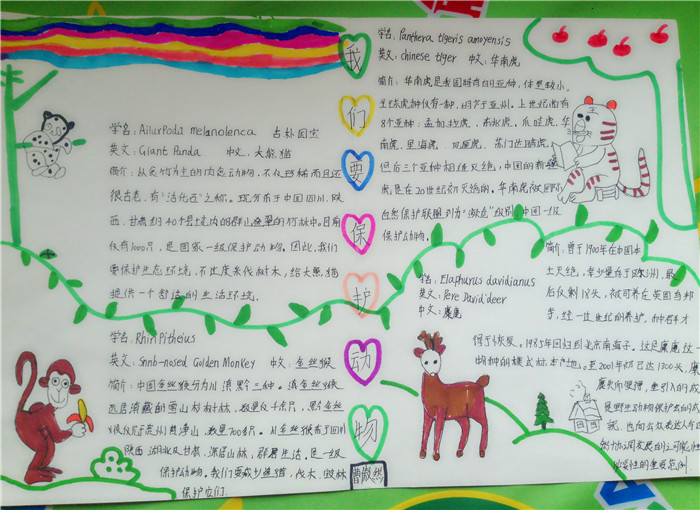 我
们
要
保
护
动
物
曹微然
学名:AilurPoda melanolenca 占朴国宝
英文:Giant Panda 中文:大熊猫
简介:从食竹为主的肉食动物,不仅珍稀而且还
很古老,有"活化石"之称。现分布于中国四川,陕
西、甘肃约40个县境内的群山叠翠的竹林中。目前
仅有1000只,是国家一级保护动物。因此,我们
要保护生态环境,不过度采伐树木,给大熊猫
提供一个舒适的生活环境。
学名:Panthera tigeris amoyensis
英文:chinese tiger 中文:华南虎
简介:华南虎是我国特有的亚种,体型较小。
虎种仅有一种,明产于亚洲。上世纪尚有
8个亚种:孟加拉虎、东北虎、爪哇虎、华
南虎、里海虎、巴厘虎、苏门达腊虎,
但后三个亚种相继灭绝,中国的新疆
虎是在20世纪初灭绝的。华南虎被国际
自然保护联盟列为"濒危"级别,中国一级
保护动物。
学名:Rhin Pitheius
英文:Snnb-nosed Golden Monkey 中文:金丝猴
简介:中国金丝猴分为川滇黔三种。滇金丝猴
远居滇藏的雪山杉树林,数量仅千余只,黔金丝
猴仅见于贵州梵净山,数量700多只。川金丝猴布于四川
陕西 湖北及甘肃,深居山林,群居生活,是一级
保护动物。我们要减少追猎,伐木、毁林
保护它们。
学名:Elaphurus davidianus
英文:Pere David'deer
中文:麋鹿
简介:曾于1900年在中国本
土灭绝,幸少量存于欧洲,最
后仅剩18头,被可养在英国乌邦
寺,经一世纪的养护,种群才
得于恢复。1985年回归到北京南海子。这是麋鹿这一
物种的模式标本产地。至2001年都已达1300头,麋
鹿失而复得,重引入的成
是野生动物保护史的成
就,也向公众表达人与自